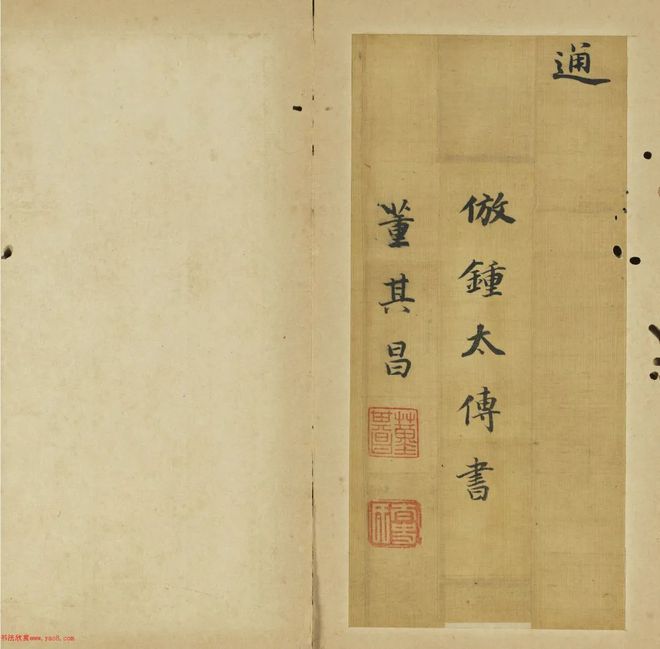 通
倣鍾太傅書
董其昌
书法欣赏www.yac8.com